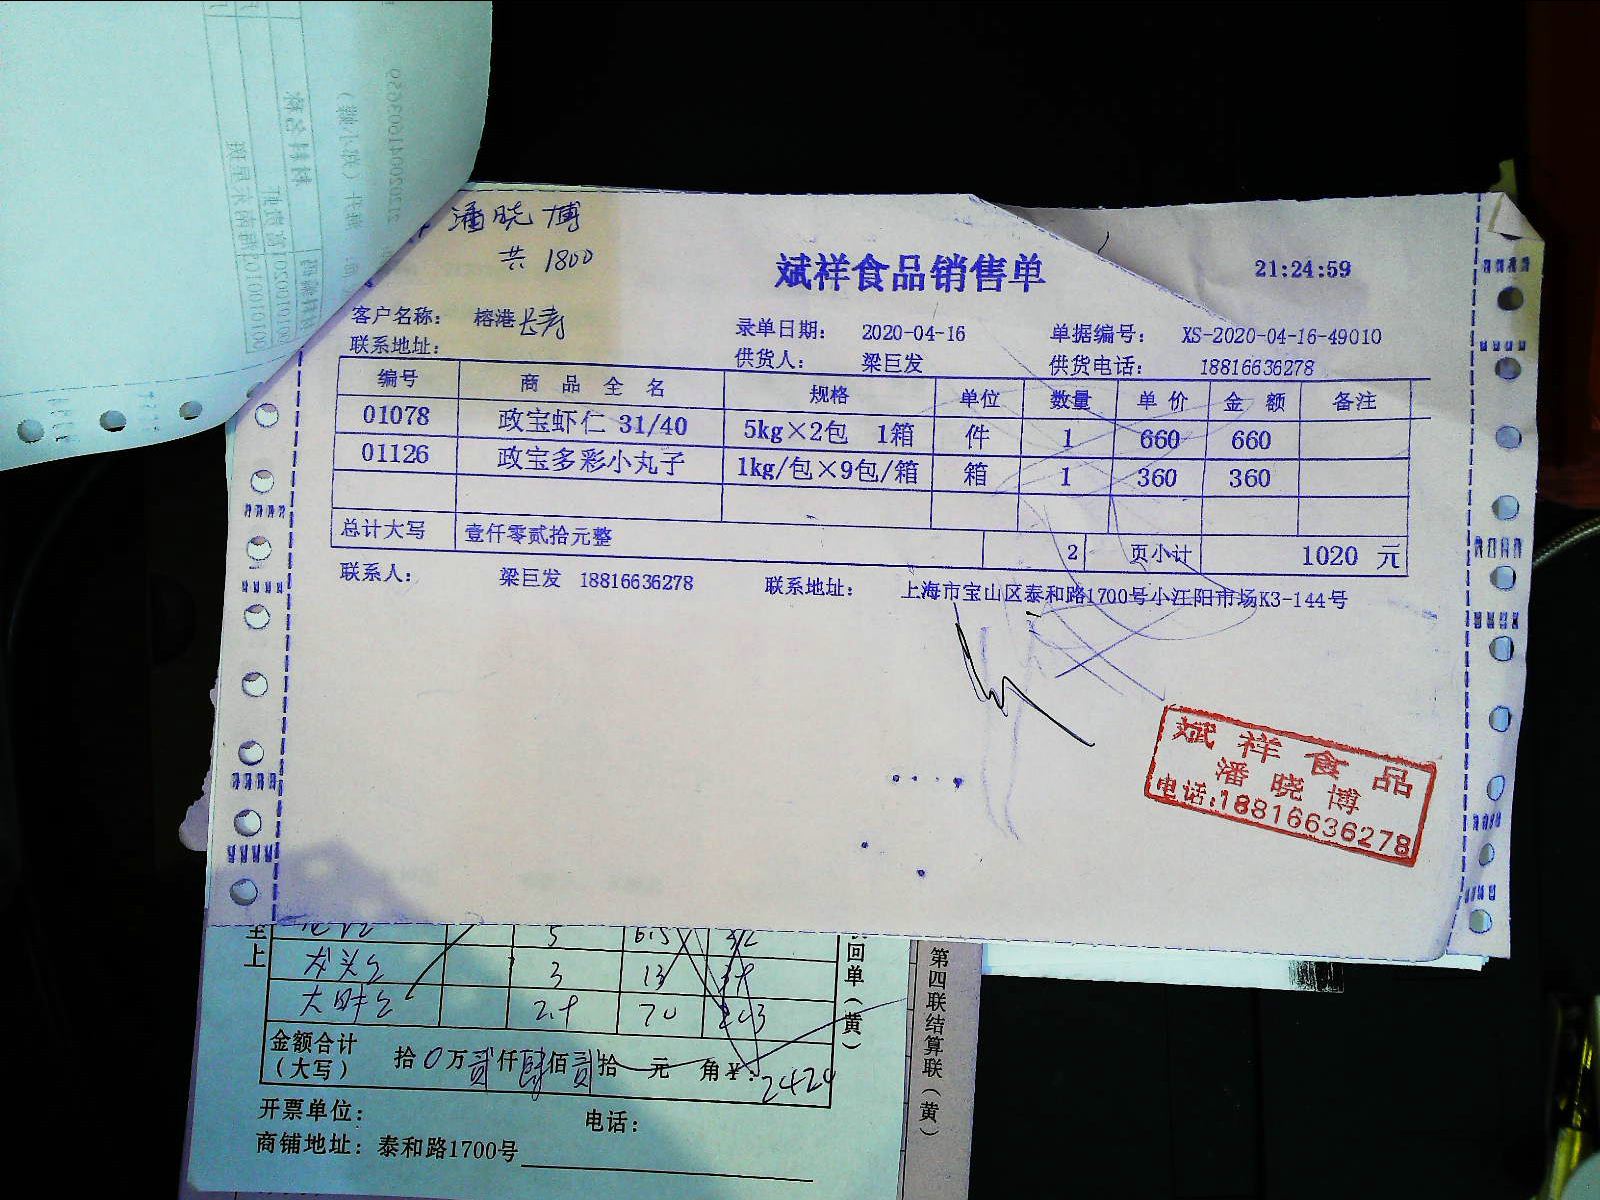 潘晓博
共 1800
斌祥食品销售单
21:24:59
客户名称： 榕港长寿
录单日期： 2020-04-16
单据编号： XS-2020-04-16-49010
联系地址：
供货人： 梁巨发
供货电话： 18816636278
编号 商品全名 规格 单位 数量 单价 金额 备注
01078 政宝虾仁 31/40 5kg×2包 1箱 件 1 660 660
01126 政宝多彩小丸子 1kg/包×9包/箱 箱 1 360 360
总计大写 壹仟零贰拾元整 2 页小计 1020 元
联系人： 梁巨发 18816636278 联系地址： 上海市宝山区泰和路1700号小江阳市场K3-144号
斌祥食品
潘晓博
电话:18816636278
至上
5 6.5 32
龙头 3 13
大 70
回单（黄）
第四联结算联（黄）
金额合计（大写） 拾0万贰仟肆佰贰拾 元 角 ¥: 2420
开票单位： 电话：
商铺地址：泰和路1700号